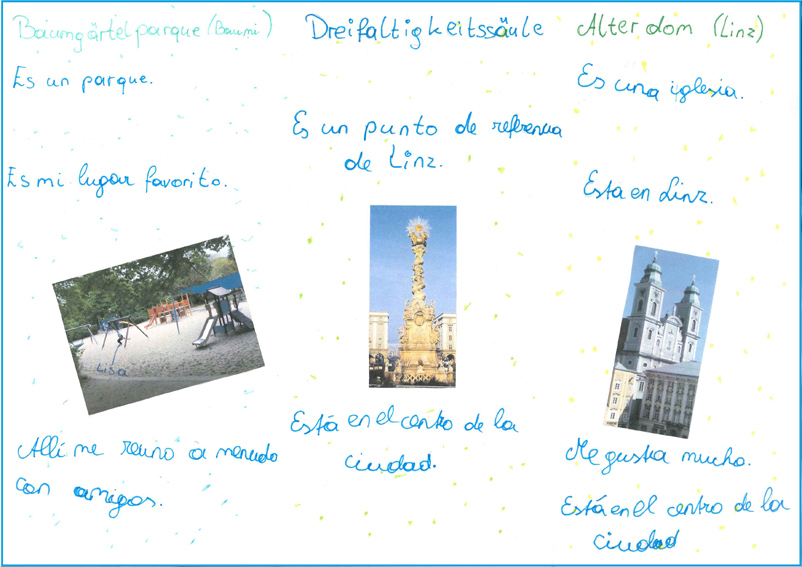 Baumgärtelparque (Baumi)
Es un parque.
Es mi lugar favorito.
Lisa
Allí me reuno a menudo
con amigos.
Dreifaltigkeitssäule
Es un punto de referencia
de Linz.
Está en el centro de la
ciudad.
Alter dom (Linz)
Es una iglesia.
Esta en Linz.
Me gusta mucho.
Está en el centro de la
ciudad